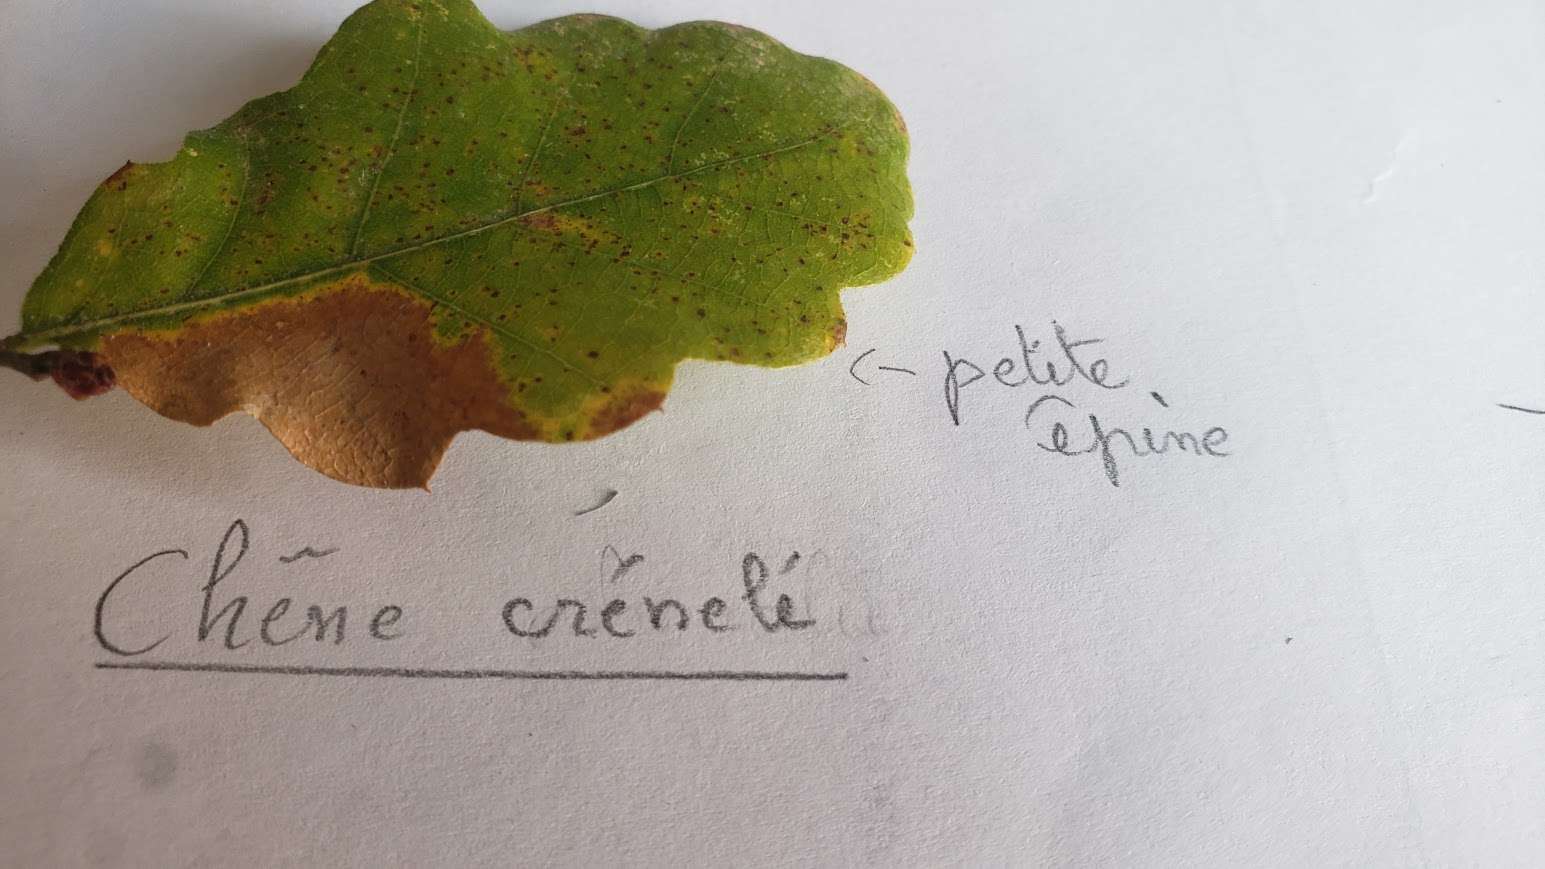 petite
épine
Chêne crénelé